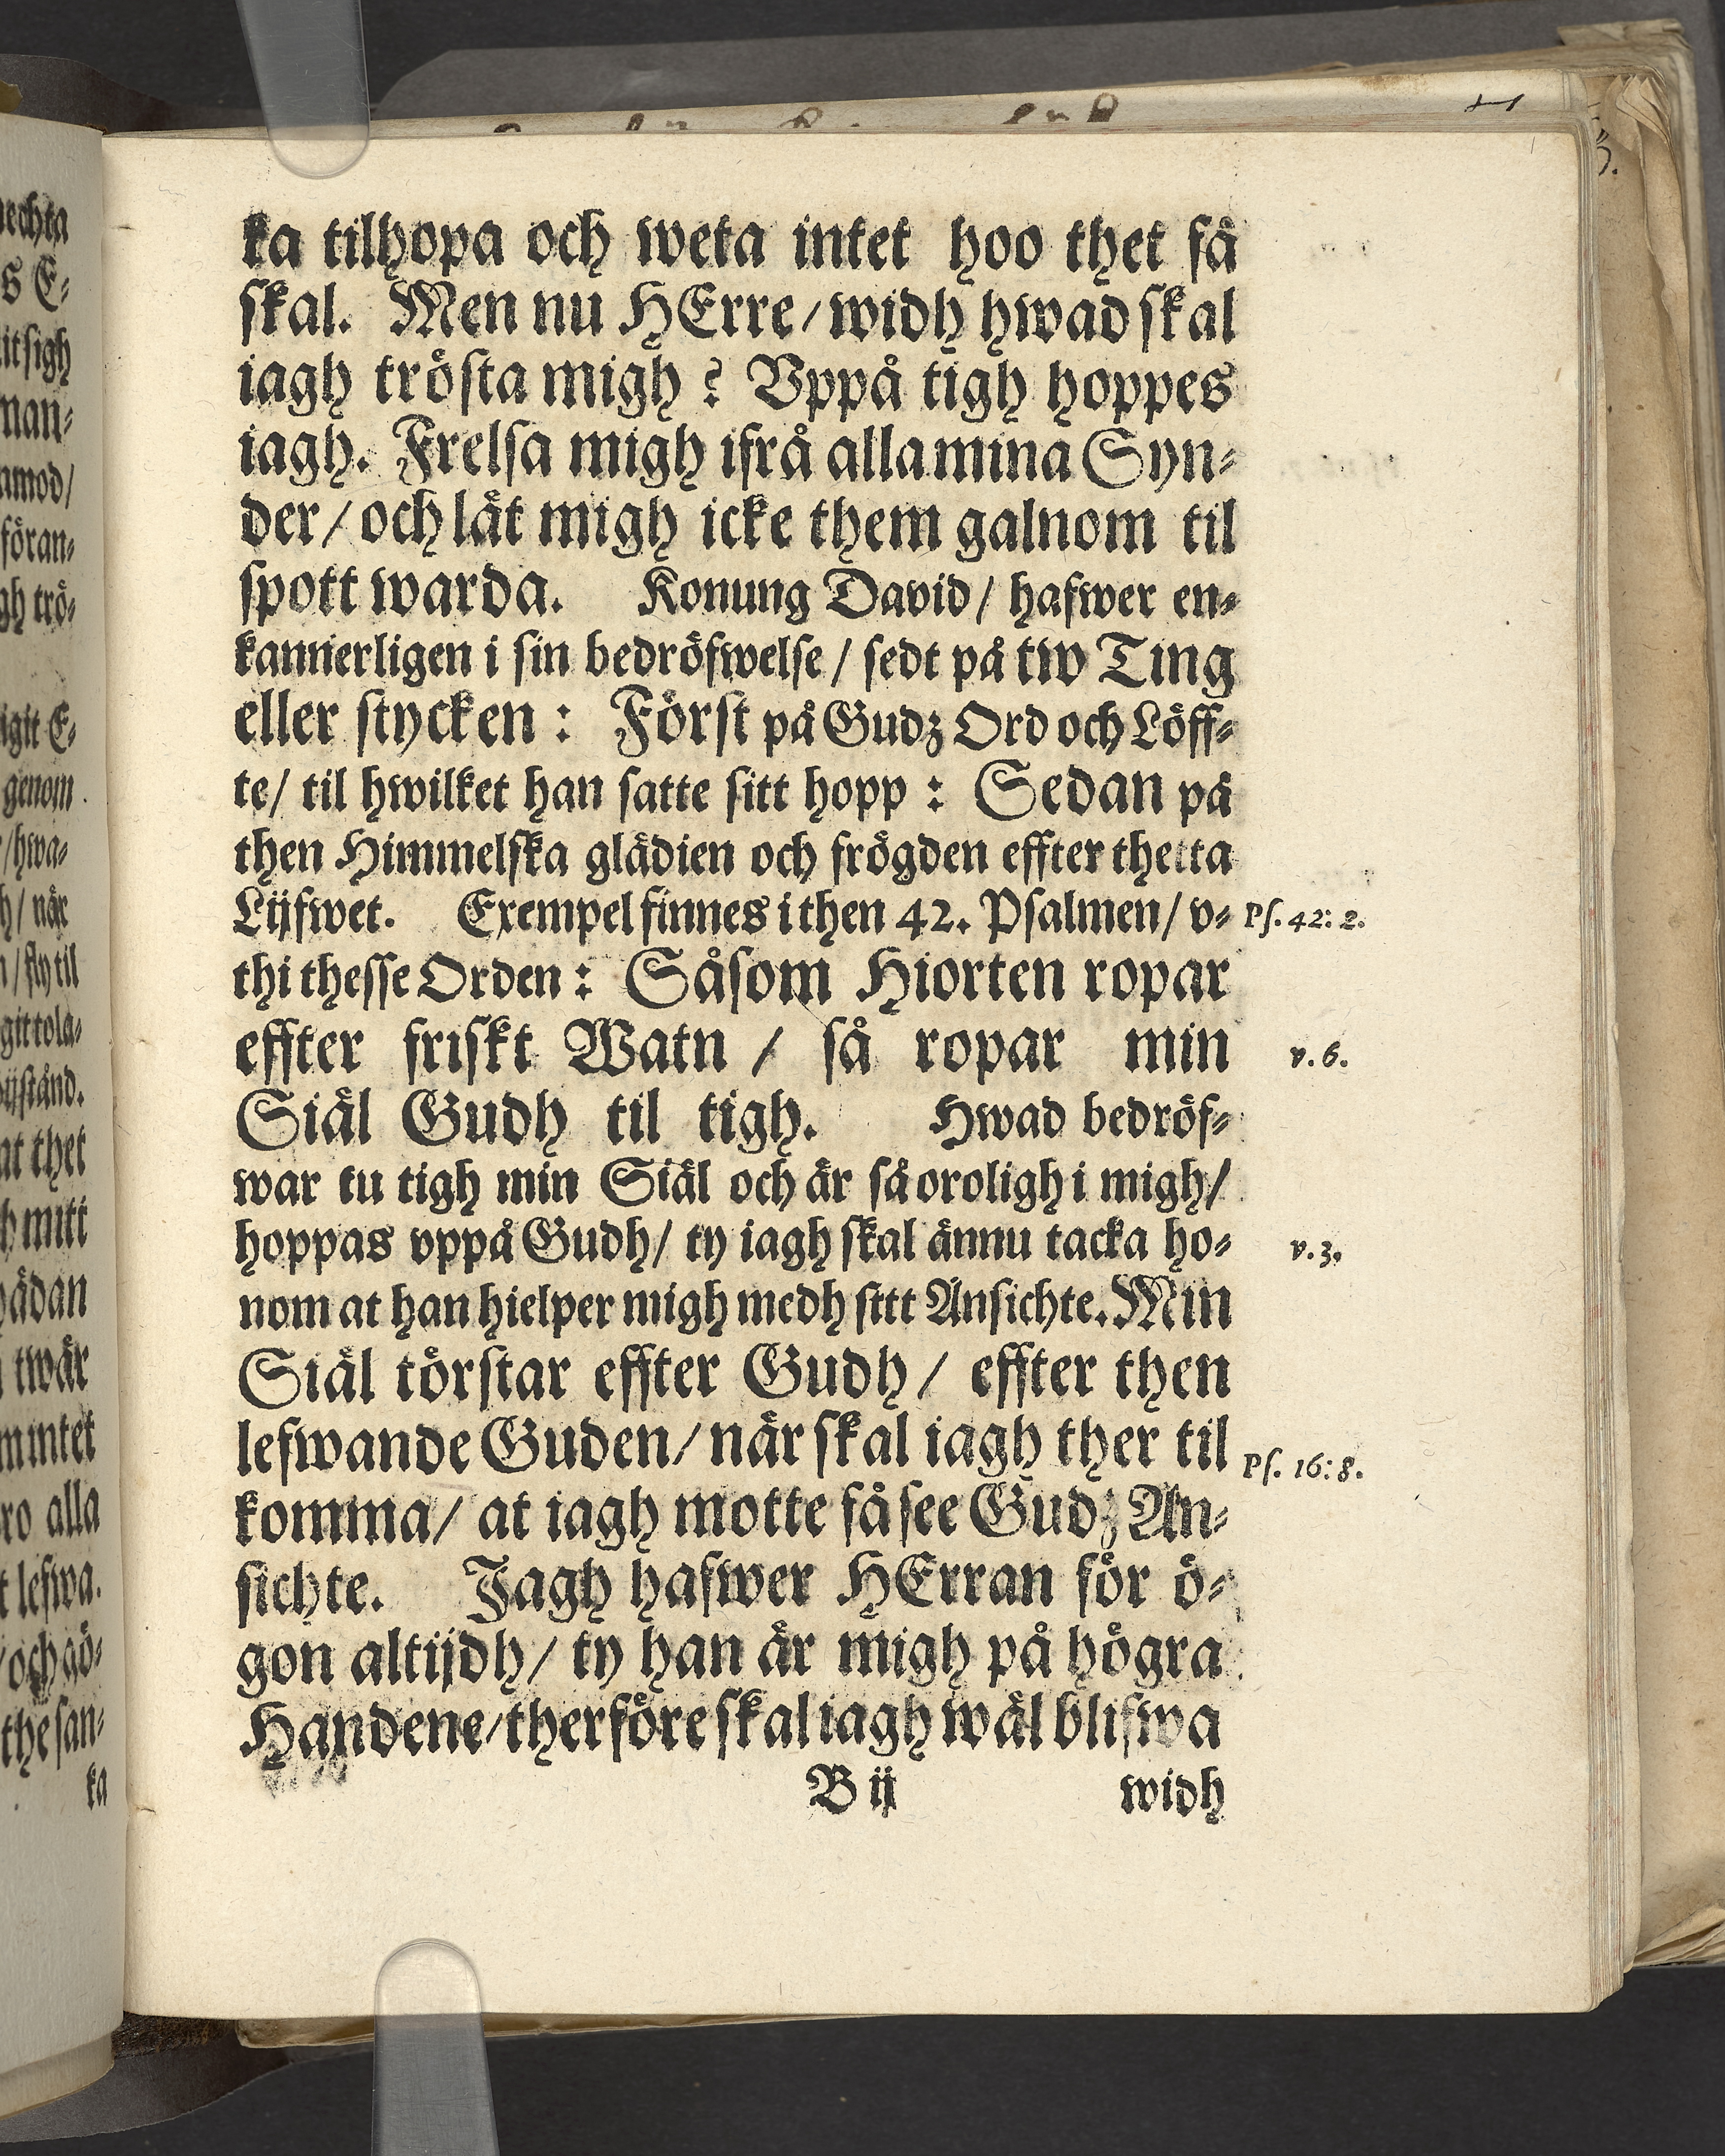 ka tilhopa och weta intet hoo thet få
skal. Men nu HErre/ widh hwad skal
iagh trösta migh? Vppå tigh hoppes
iagh. Frelsa migh ifrå alla mina Syn-
der/ och låt migh icke them galnom til
spott warda. Konung David/ hafwer en-
kannerligen i sin bedröfwelse/ sedt på tw Ting
eller stycken: Först på Gudz Ord och Löff-
te/ til hwilket han satte sitt hopp: Sedan på
then Himmelska glädien och frögden effter thetta
Lijfwet. Exempel finnes i then 42. Psalmen/ v-
Ps. 42: 2.
thi thesse Orden: Såsom Hiorten ropar
effter friskt Watn/ så ropar min
v. 6.
Siäl Gudh til tigh. Hwad bedröf-
war tu tigh min Siäl och är så oroligh i migh/
hoppas vppå Gudh/ ty iagh skal ännu tacka ho-
v. 3.
nom at han hielper migh medh sitt Ansichte. Min
Siäl törstar effter Gudh/ effter then
lefwande Guden/ när skal iagh ther til
Ps. 16: 8.
komma/ at iagh motte få see Gudz An-
sichte. Jagh hafwer HErran för ö-
gon altijdh/ ty han är migh på högra
Handene/ therföre skal iagh wäl blifwa
B ij
widh